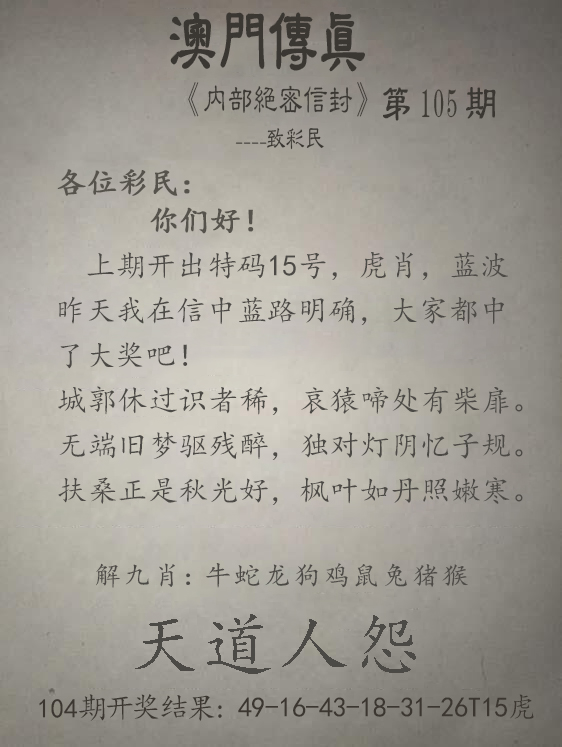 澳門傳眞
《内部絕密信封》第105期
----致彩民
各位彩民：
你们好！
上期开出特码15号，虎肖，蓝波
昨天我在信中蓝路明确，大家都中
了大奖吧！
城郭休过识者稀，哀猿啼处有柴扉。
无端旧梦驱残醉，独对灯阴忆子规。
扶桑正是秋光好，枫叶如丹照嫩寒。
解九肖：牛蛇龙狗鸡鼠兔猪猴
天道人怨
104期开奖结果：49-16-43-18-31-26T15虎